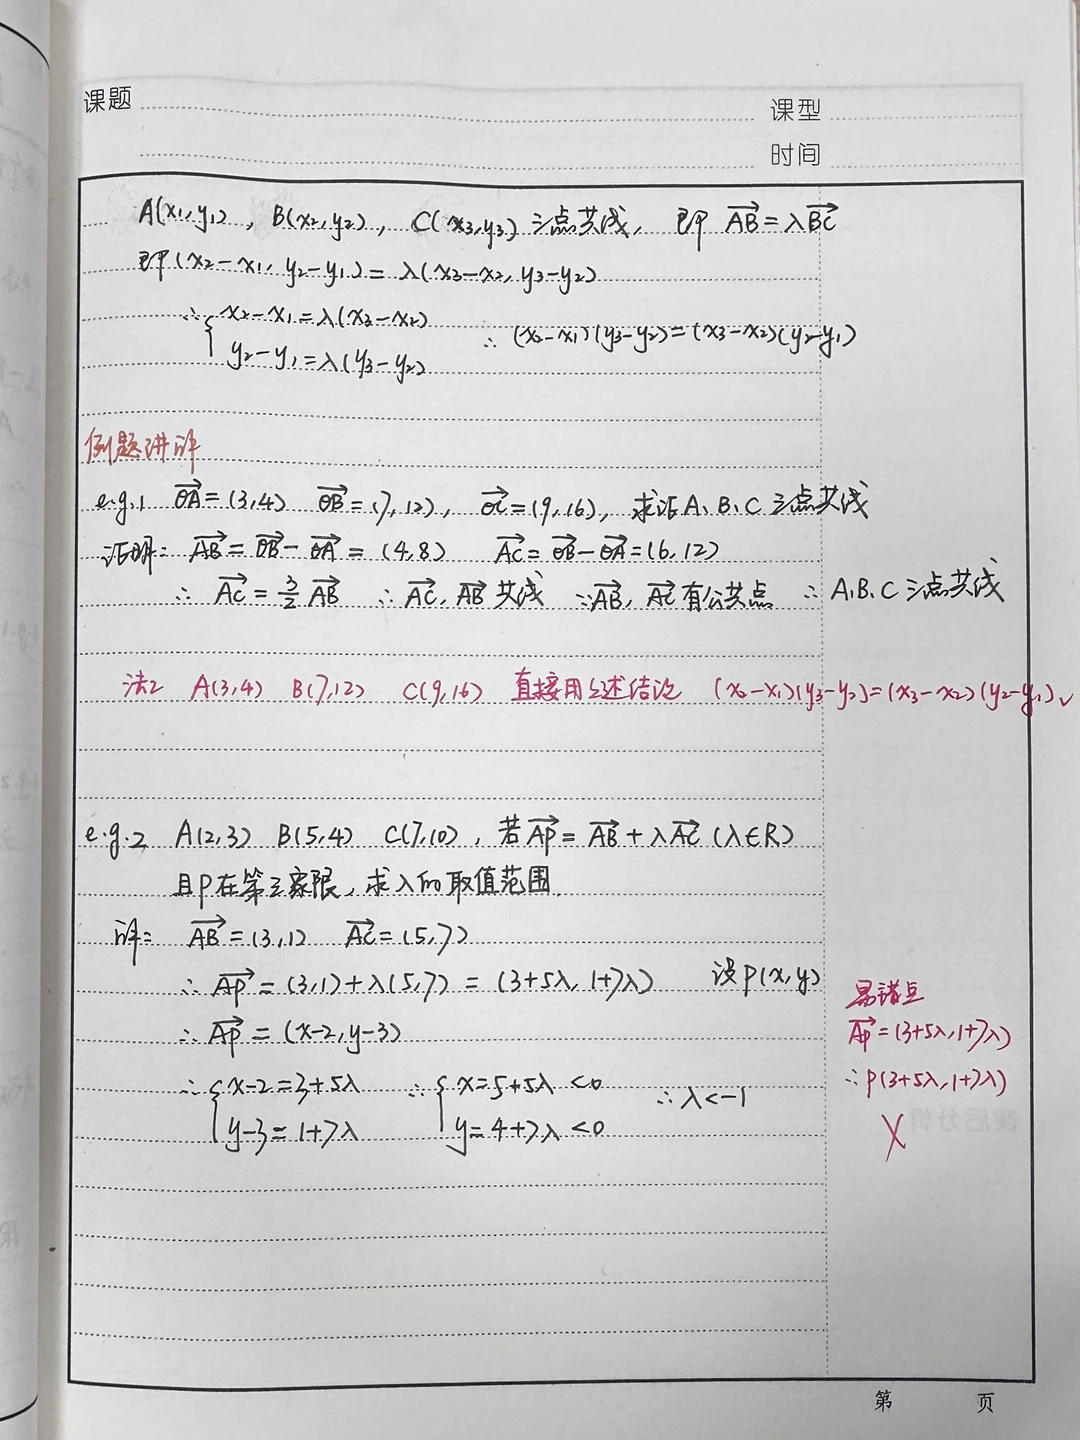 课题
课型
时间
A(x₁,y₁), B(x₂,y₂), C(x₃,y₃) 三点共线, 即 \overrightarrow{AB}=λ\overrightarrow{BC}
即(x₂-x₁, y₂-y₁)=λ(x₃-x₂, y₃-y₂)
∴{x₂-x₁=λ(x₃-x₂)
y₂-y₁=λ(y₃-y₂)
∴ (x₂-x₁)(y₃-y₂)=(x₃-x₂)(y₂-y₁)
例题讲解
e.g.1 \overrightarrow{OA}=(3,4) \overrightarrow{OB}=(7,12), \overrightarrow{OC}=(9,16), 求证A、B、C三点共线
证明: \overrightarrow{AB}=\overrightarrow{OB}-\overrightarrow{OA}=(4,8) \overrightarrow{AC}=\overrightarrow{OB}-\overrightarrow{OA}=(6,12)
∴ \overrightarrow{AC}=\frac{3}{2}\overrightarrow{AB} ∴ \overrightarrow{AC}, \overrightarrow{AB}共线 ∵\overrightarrow{AB}, \overrightarrow{AC}有公共点 ∴ A、B、C三点共线
法2 A(3,4) B(7,12) C(9,16) 直接用上述结论 (x₂-x₁)(y₃-y₂)=(x₃-x₂)(y₂-y₁)✓
e.g.2 A(2,3) B(5,4) C(7,10), 若\overrightarrow{AP}=\overrightarrow{AB}+λ\overrightarrow{AC}(λ∈R)
且P在第三象限, 求λ的取值范围.
解: \overrightarrow{AB}=(3,1) \overrightarrow{AC}=(5,7)
∴ \overrightarrow{AP}=(3,1)+λ(5,7)=(3+5λ, 1+7λ) 设P(x,y)
∴ \overrightarrow{AP}=(x-2,y-3)
∴{x-2=3+5λ ∴{x=5+5λ<0
y-3=1+7λ y=4+7λ<0
∴λ<-1
易错点
\overrightarrow{AP}=(3+5λ,1+7λ)
∴P(3+5λ,1+7λ)
X
第 页